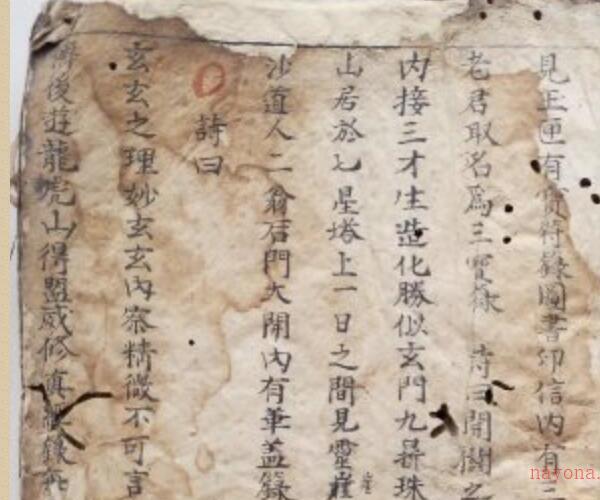 見玉匣有 符籙圖書印信內有
老君取名爲三寶籙 詩曰開闢之
內接三才生造化勝似玄門九昇珠
山居於七星塔上一日之間見靈崖
沙道人二翁石門大開內有華盖籙
詩曰
玄玄之理妙玄玄內察精微不可言
後遊龍虎山得盟威修真 籙
nayona.